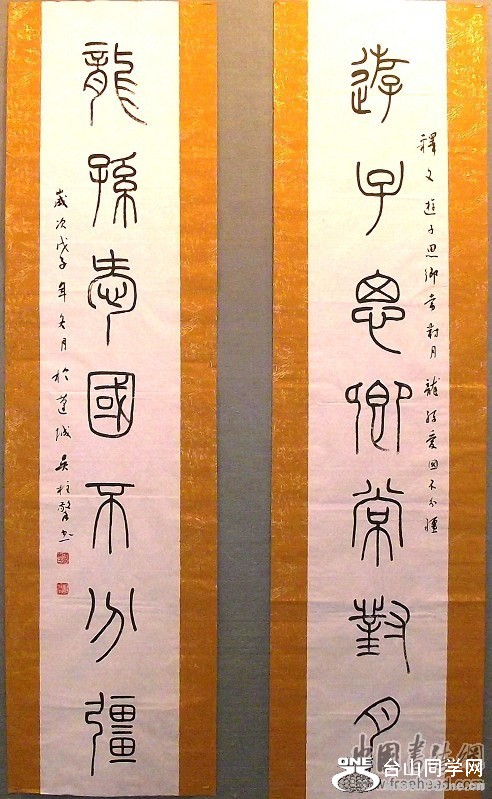 遊子思鄉常對月
釋文 遊子思鄉常對月 龍孫愛國不分疆
龍孫愛國不分疆
歲次戊子年冬月於蓮城吳柱馨書
中国书法网
www.freehead.com
ONE 台山同学网